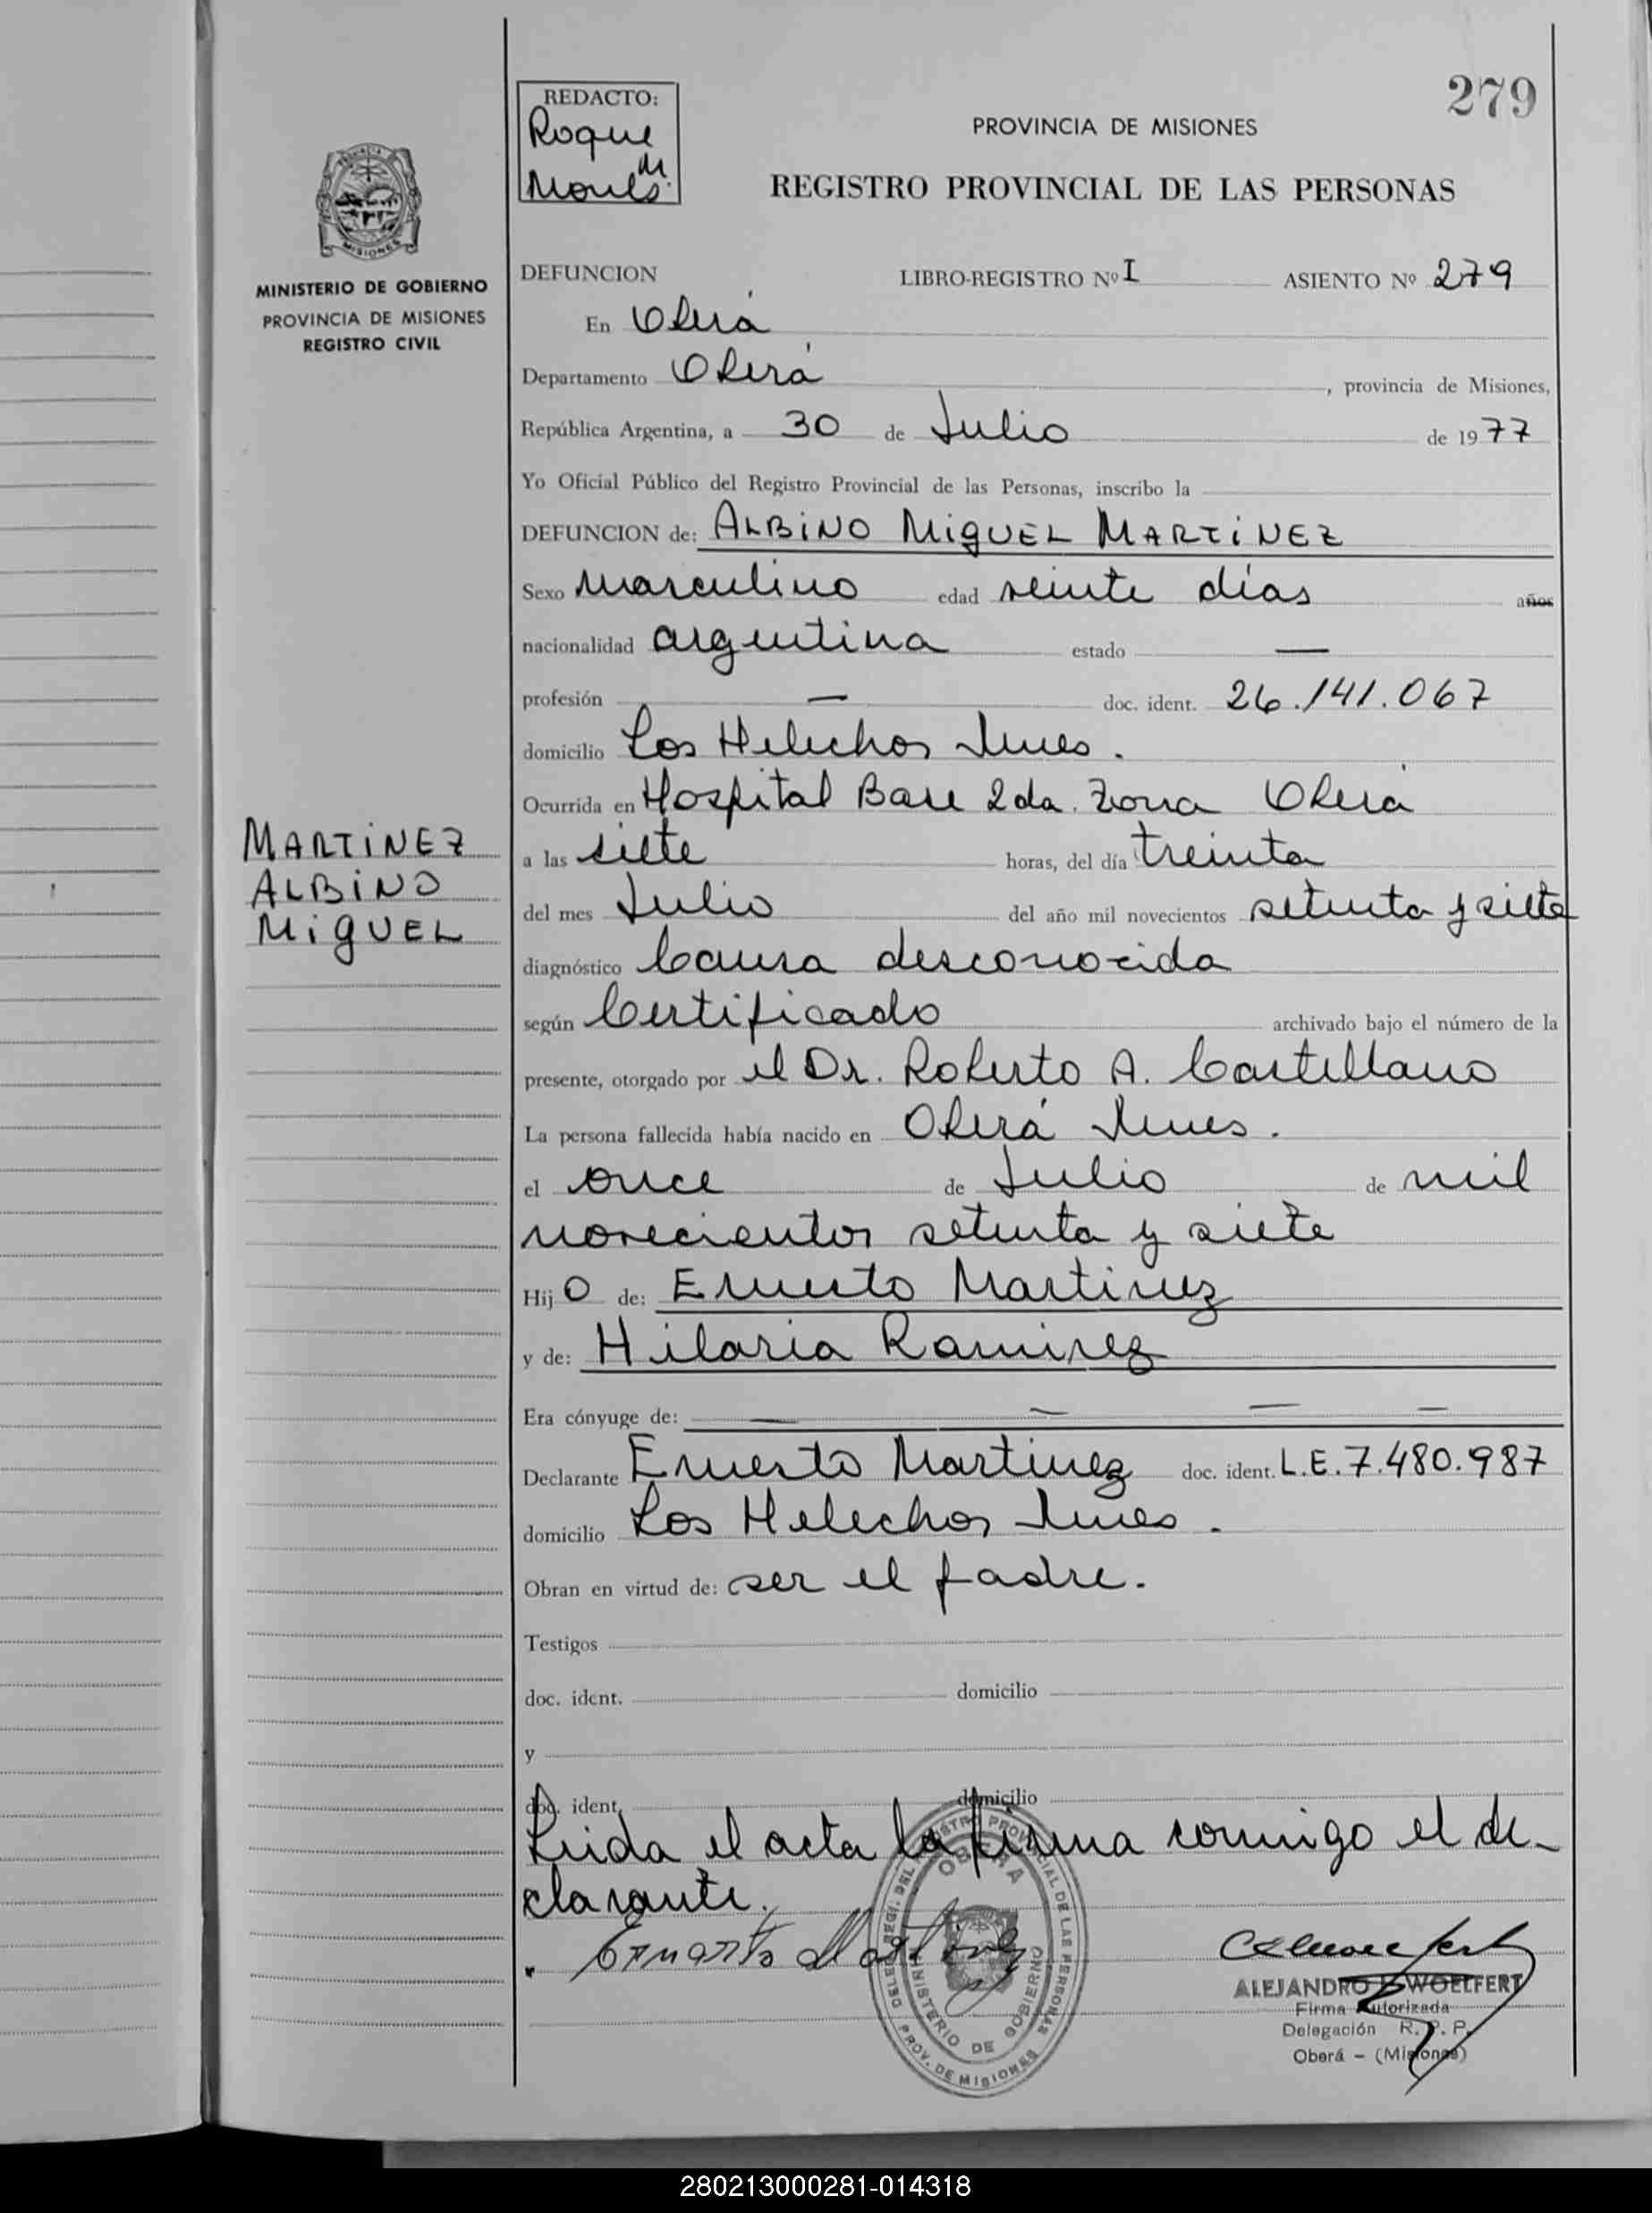 279
REDACTO:
Roque
M
PROVINCIA DE MISIONES
REGISTRO PROVINCIAL DE LAS PERSONAS
MISIONES
MINISTERIO DE GOBIERNO
PROVINCIA DE MISIONES
REGISTRO CIVIL
DEFUNCION LIBRO-REGISTRO Nº I ASIENTO Nº 279
En Oberá
Departamento Oberá, provincia de Misiones,
República Argentina, a 30 de Julio de 1977
Yo Oficial Público del Registro Provincial de las Personas, inscribo la
DEFUNCION de: ALBINO MIGUEL MARTINEZ
Sexo Masculino edad veinte días años
nacionalidad argentina estado —
profesión — doc. ident. 26.141.067
domicilio Los Helechos Mnes.
Ocurrida en Hospital Base 2da. Zona Oberá
a las siete horas, del día treinta
del mes Julio del año mil novecientos setenta y siete
diagnóstico Causa desconocida
según Certificado archivado bajo el número de la
presente, otorgado por el Dr. Roberto A. Castellano
La persona fallecida había nacido en Oberá Mnes.
el once de Julio de mil
novecientos setenta y siete
Hijo de: Ernesto Martinez
y de: Hilaria Ramirez
Era cónyuge de: — — — —
Declarante Ernesto Martinez doc. ident. L.E.7.480.987
domicilio Los Helechos Mnes.
Obran en virtud de: ser el padre.
Testigos
doc. ident. domicilio
y
doc. ident. domicilio
Leida el acta la firma conmigo el de-
clarante.
Ernesto Martinez
MARTINEZ
ALBINO
MIGUEL
OBERA
MINISTERIO DE GOBIERNO
PROV. DE MISIONES
ALEJANDRO WOELFERT
Firma Autorizada
Delegación R. P. P.
Oberá - (Misiones)
280213000281-014318